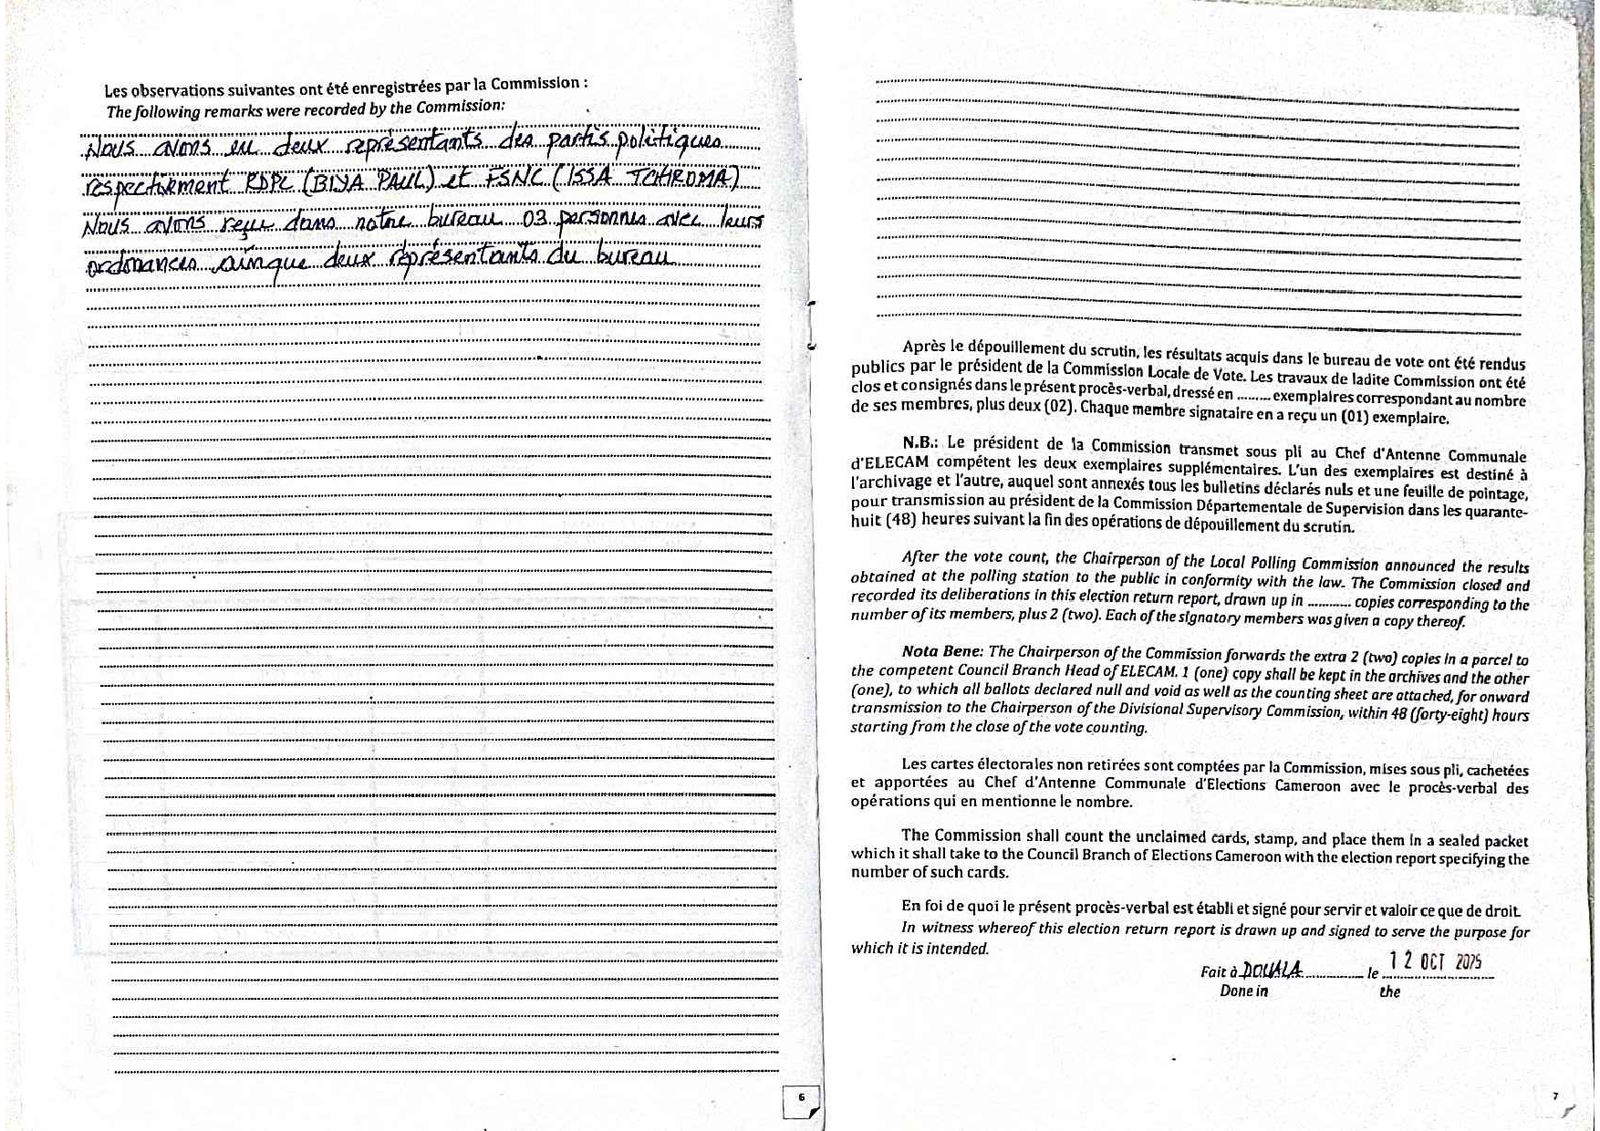 Les observations suivantes ont été enregistrées par la Commission :
The following remarks were recorded by the Commission:
Nous avons eu deux représentants des partis politiques
respectivement RDPC (BIYA PAUL) et FSNC (ISSA TCHIROMA)
Nous avons reçu dans notre bureau 03 personnes avec leurs
ordonances ainque deux représentants du bureau
6
Après le dépouillement du scrutin, les résultats acquis dans le bureau de vote ont été rendus
publics par le président de la Commission Locale de Vote. Les travaux de ladite Commission ont été
clos et consignés dans le présent procès-verbal, dressé en ......... exemplaires correspondant au nombre
de ses membres, plus deux (02). Chaque membre signataire en a reçu un (01) exemplaire.
N.B.: Le président de la Commission transmet sous pli au Chef d'Antenne Communale
d'ELECAM compétent les deux exemplaires supplémentaires. L'un des exemplaires est destiné à
l'archivage et l'autre, auquel sont annexés tous les bulletins déclarés nuls et une feuille de pointage,
pour transmission au président de la Commission Départementale de Supervision dans les quarante-
huit (48) heures suivant la fin des opérations de dépouillement du scrutin.
After the vote count, the Chairperson of the Local Polling Commission announced the results
obtained at the polling station to the public in conformity with the law. The Commission closed and
recorded its deliberations in this election return report, drawn up in ........... copies corresponding to the
number of its members, plus 2 (two). Each of the signatory members was given a copy thereof.
Nota Bene: The Chairperson of the Commission forwards the extra 2 (two) copies in a parcel to
the competent Council Branch Head of ELECAM. 1 (one) copy shall be kept in the archives and the other
(one), to which all ballots declared null and void as well as the counting sheet are attached, for onward
transmission to the Chairperson of the Divisional Supervisory Commission, within 48 (forty-eight) hours
starting from the close of the vote counting.
Les cartes électorales non retirées sont comptées par la Commission, mises sous pli, cachetées
et apportées au Chef d'Antenne Communale d'Elections Cameroon avec le procès-verbal des
opérations qui en mentionne le nombre.
The Commission shall count the unclaimed cards, stamp, and place them in a sealed packet
which it shall take to the Council Branch of Elections Cameroon with the election report specifying the
number of such cards.
En foi de quoi le présent procès-verbal est établi et signé pour servir et valoir ce que de droit.
In witness whereof this election return report is drawn up and signed to serve the purpose for
which it is intended.
Fait à DOUALA ............... le 12 OCT 2025
Done in the
7